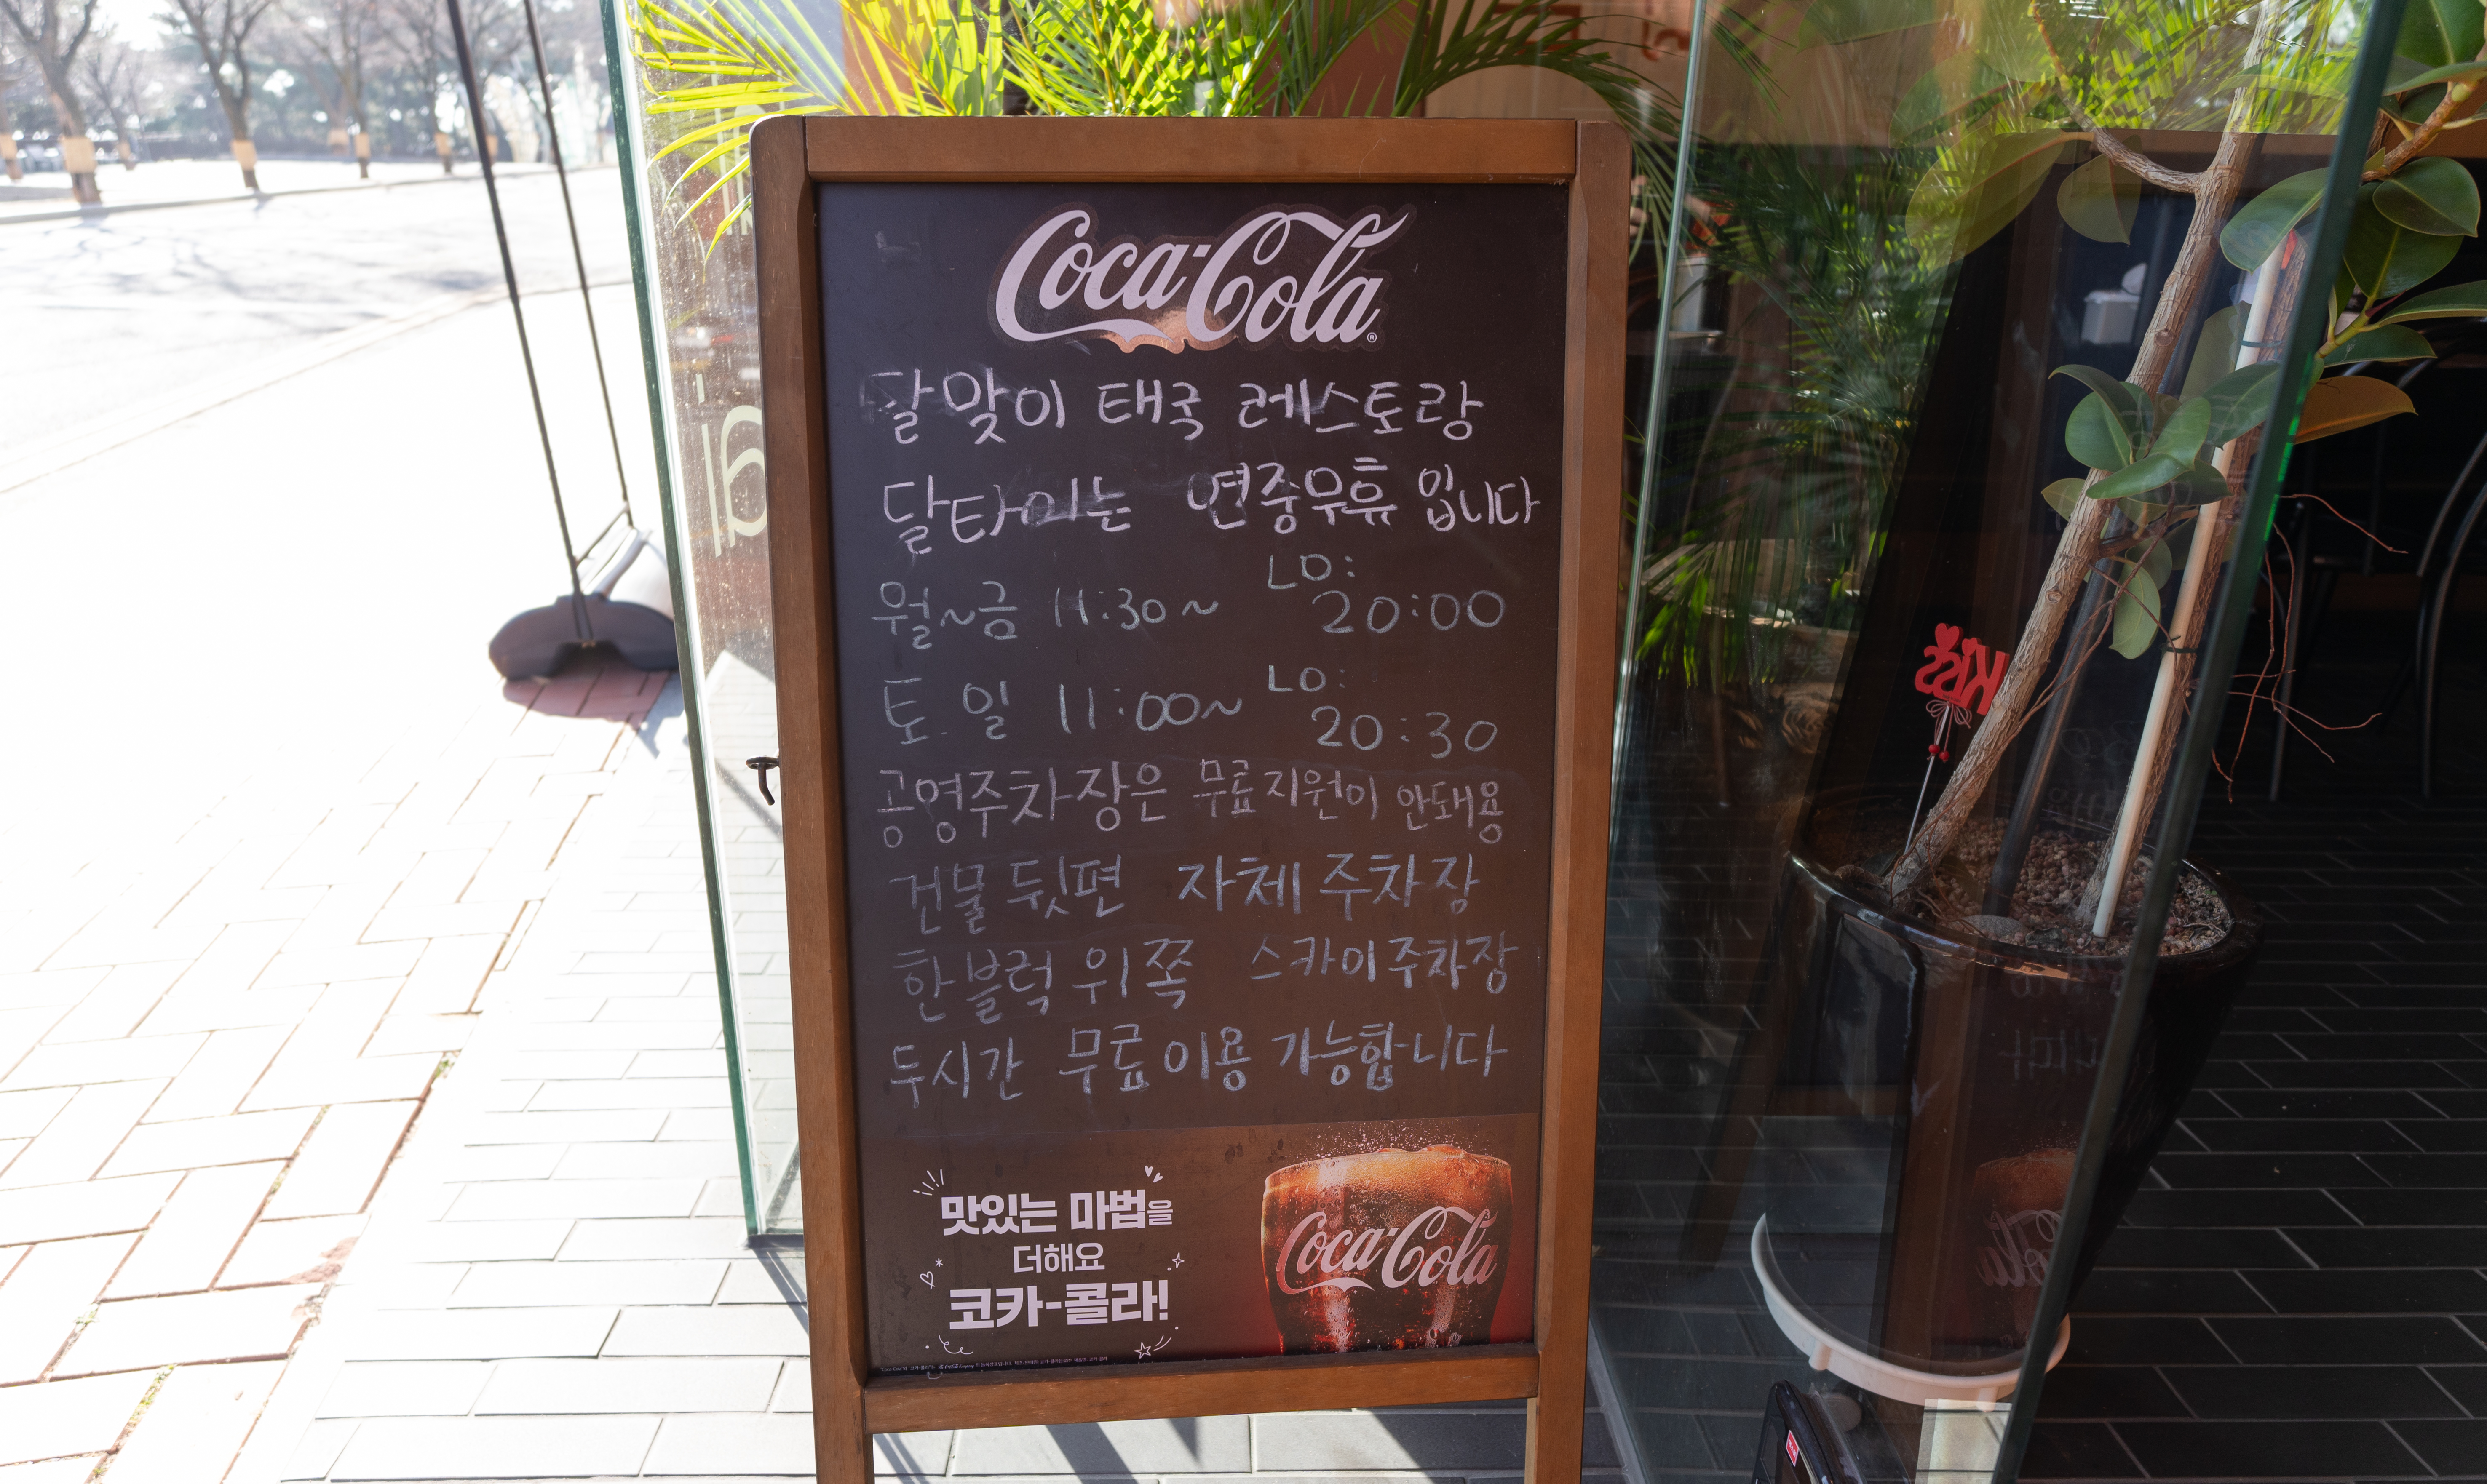 Coca-Cola®
달맞이 태국 레스토랑
달타이는 연중무휴 입니다
월~금 11:30~ LO: 20:00
토.일 11:00~ LO: 20:30
공영주차장은 무료지원이 안돼용
건물 뒷편 자체 주차장
한블럭 위쪽 스카이주차장
두시간 무료이용 가능합니다
맛있는 마법을
더해요
코카-콜라!
Coca-Cola
Kiss